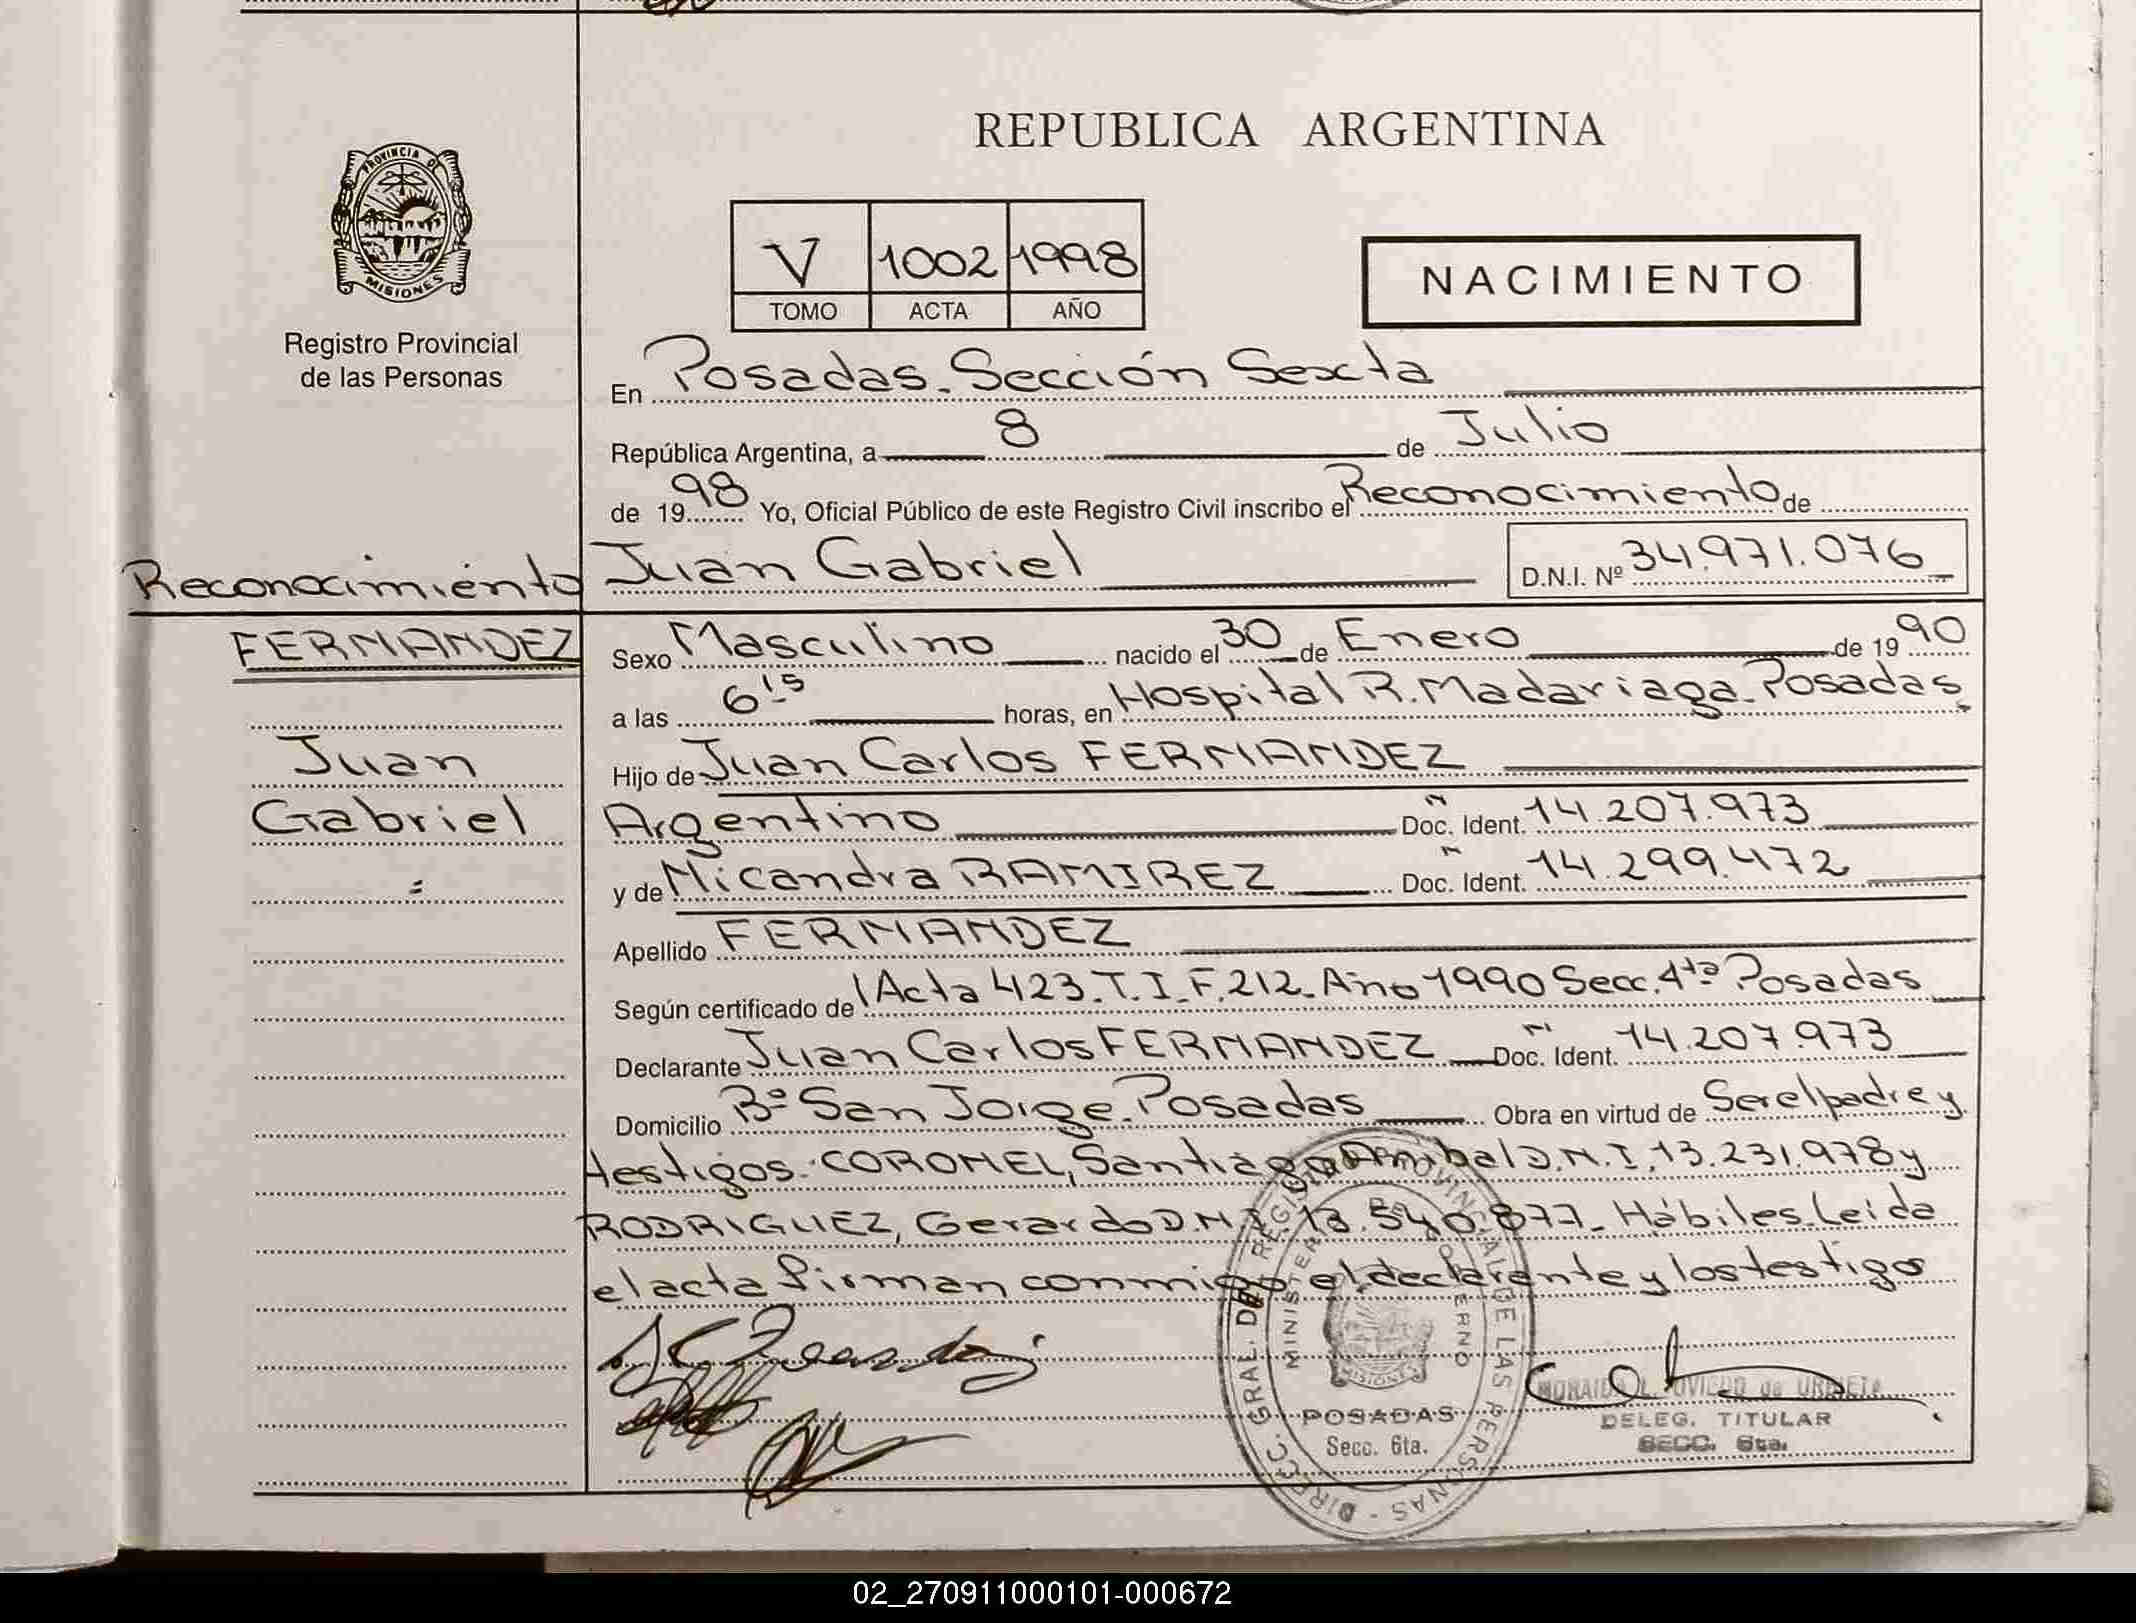 PROVINCIA DE
MISIONES
Registro Provincial
de las Personas
REPUBLICA ARGENTINA
V 1002 1998
TOMO ACTA AÑO
NACIMIENTO
En Posadas. Sección Sexta
República Argentina, a 8 de Julio
de 1998 Yo, Oficial Público de este Registro Civil inscribo el Reconocimiento de
Reconocimiento
Juan Gabriel D.N.I. Nº 34.971.076
FERNANDEZ
Juan
Gabriel
Sexo Masculino nacido el 30 de Enero de 1990
a las 6,15 horas, en Hospital R. Madariaga. Posadas
Hijo de Juan Carlos FERNANDEZ
Argentino Doc. Ident. 14.207.973
y de Nicandra RAMIREZ Doc. Ident. 14.299.472
Apellido FERNANDEZ
Según certificado de Acta 423. T. I. F. 212. Año 1990 Secc. 4ta Posadas
Declarante Juan Carlos FERNANDEZ Doc. Ident. 14.207.973
Domicilio Bº San Jorge. Posadas Obra en virtud de Ser el padre y
testigos: CORONEL, Santiago Anibal D.N.I. 13.231.978 y
RODRIGUEZ, Gerardo D.N.I. 13.540.877. Hábiles. Leida
el acta firman conmigo el declarante y los testigos
DIRECC. GRAL. DEL REGISTRO PROVINCIAL DE LAS PERSONAS
MINISTERIO DE GOBIERNO
MISIONES
POSADAS
Secc. 6ta.
OVIEDO de
DELEG. TITULAR
SECC. 6ta.
02_270911000101-000672